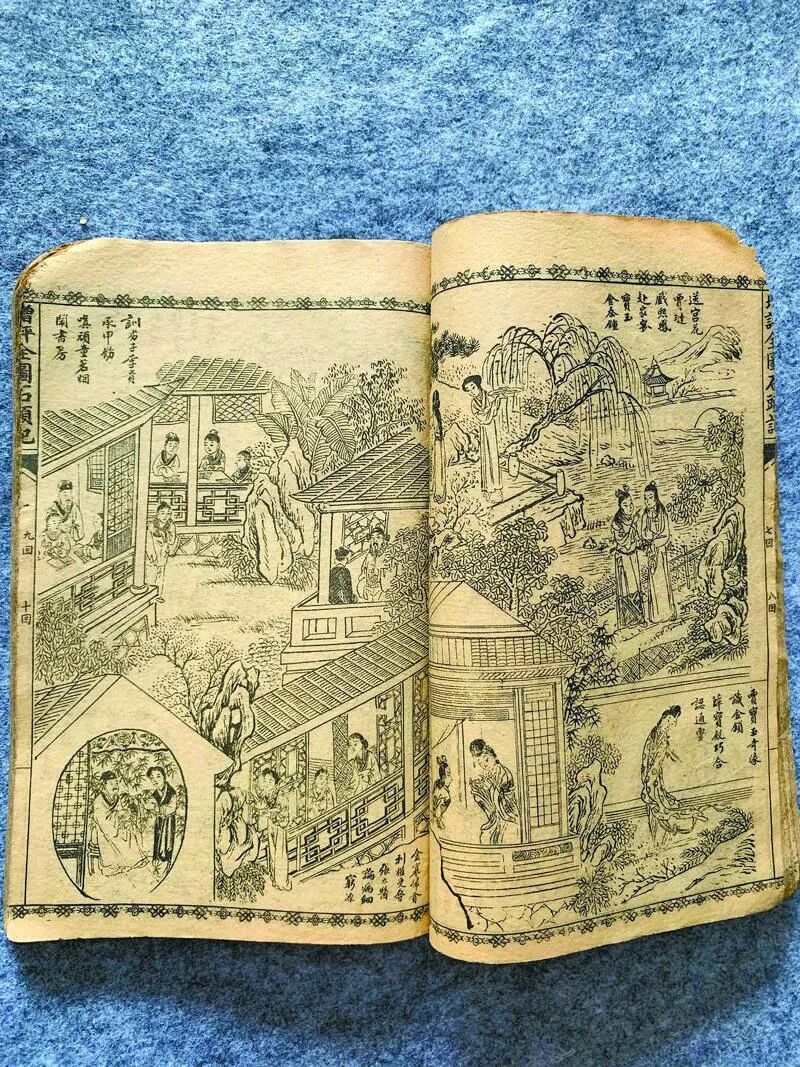 增評全圖石頭記
七回
八回
送宮花
賈璉
戲熙鳳
赴家宴
寶玉
會秦鐘
賈寶玉奇緣
識金鎖
薛寶釵巧合
認通靈
訓劣子李貴
承申飭
嗔頑童茗烟
鬧書房
金寡婦貪
利權受辱
張太醫
論病細
窮源
增評全圖石頭記
九回
十回